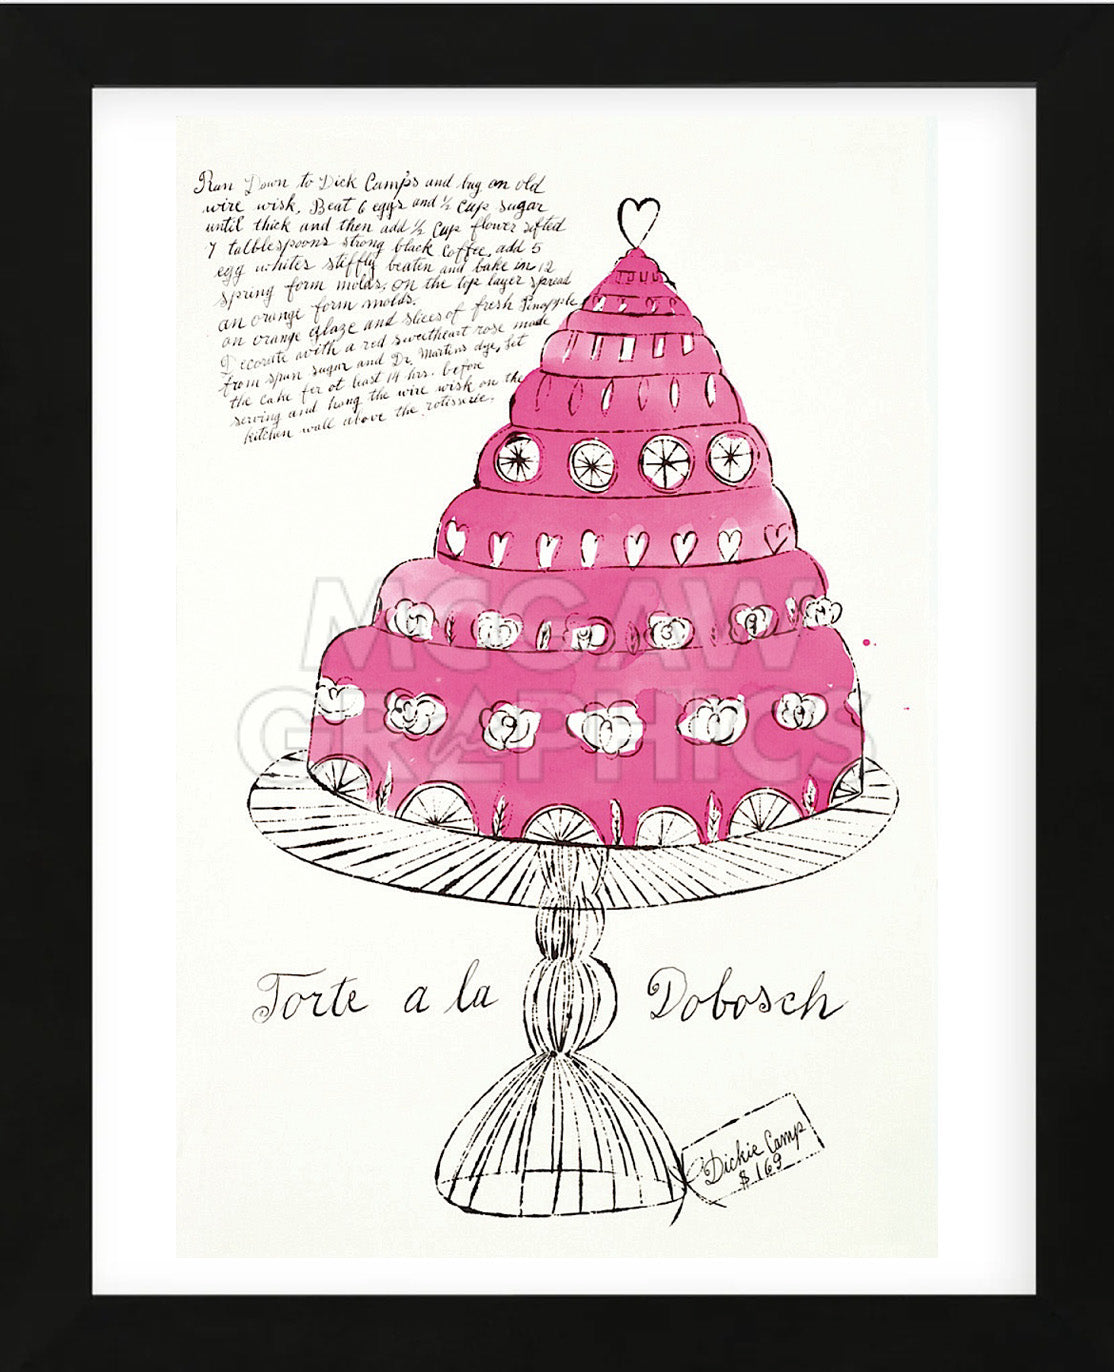 Run Down to Dick Camps and buy an old
wire wisk, Beat 6 eggs and ½ cup sugar
until thick and then add ½ cup flower sifted
7 talblespoons strong black coffee, add 5
egg whites stiffly beaten and bake in 12
spring form molds. on the top layer spread
an orange form molds.
an orange glaze and slices of fresh Pinapple
Decorate with a red sweetheart rose made
from spun sugar and Dr. Martins dye, let
the cake for at least 14 hrs. before
serving and hang the wire wisk on the
kitchen wall above the rotisserie.
MCGAW
GRAPHICS
Torte a la Dobosch
Dickie Camp
$169